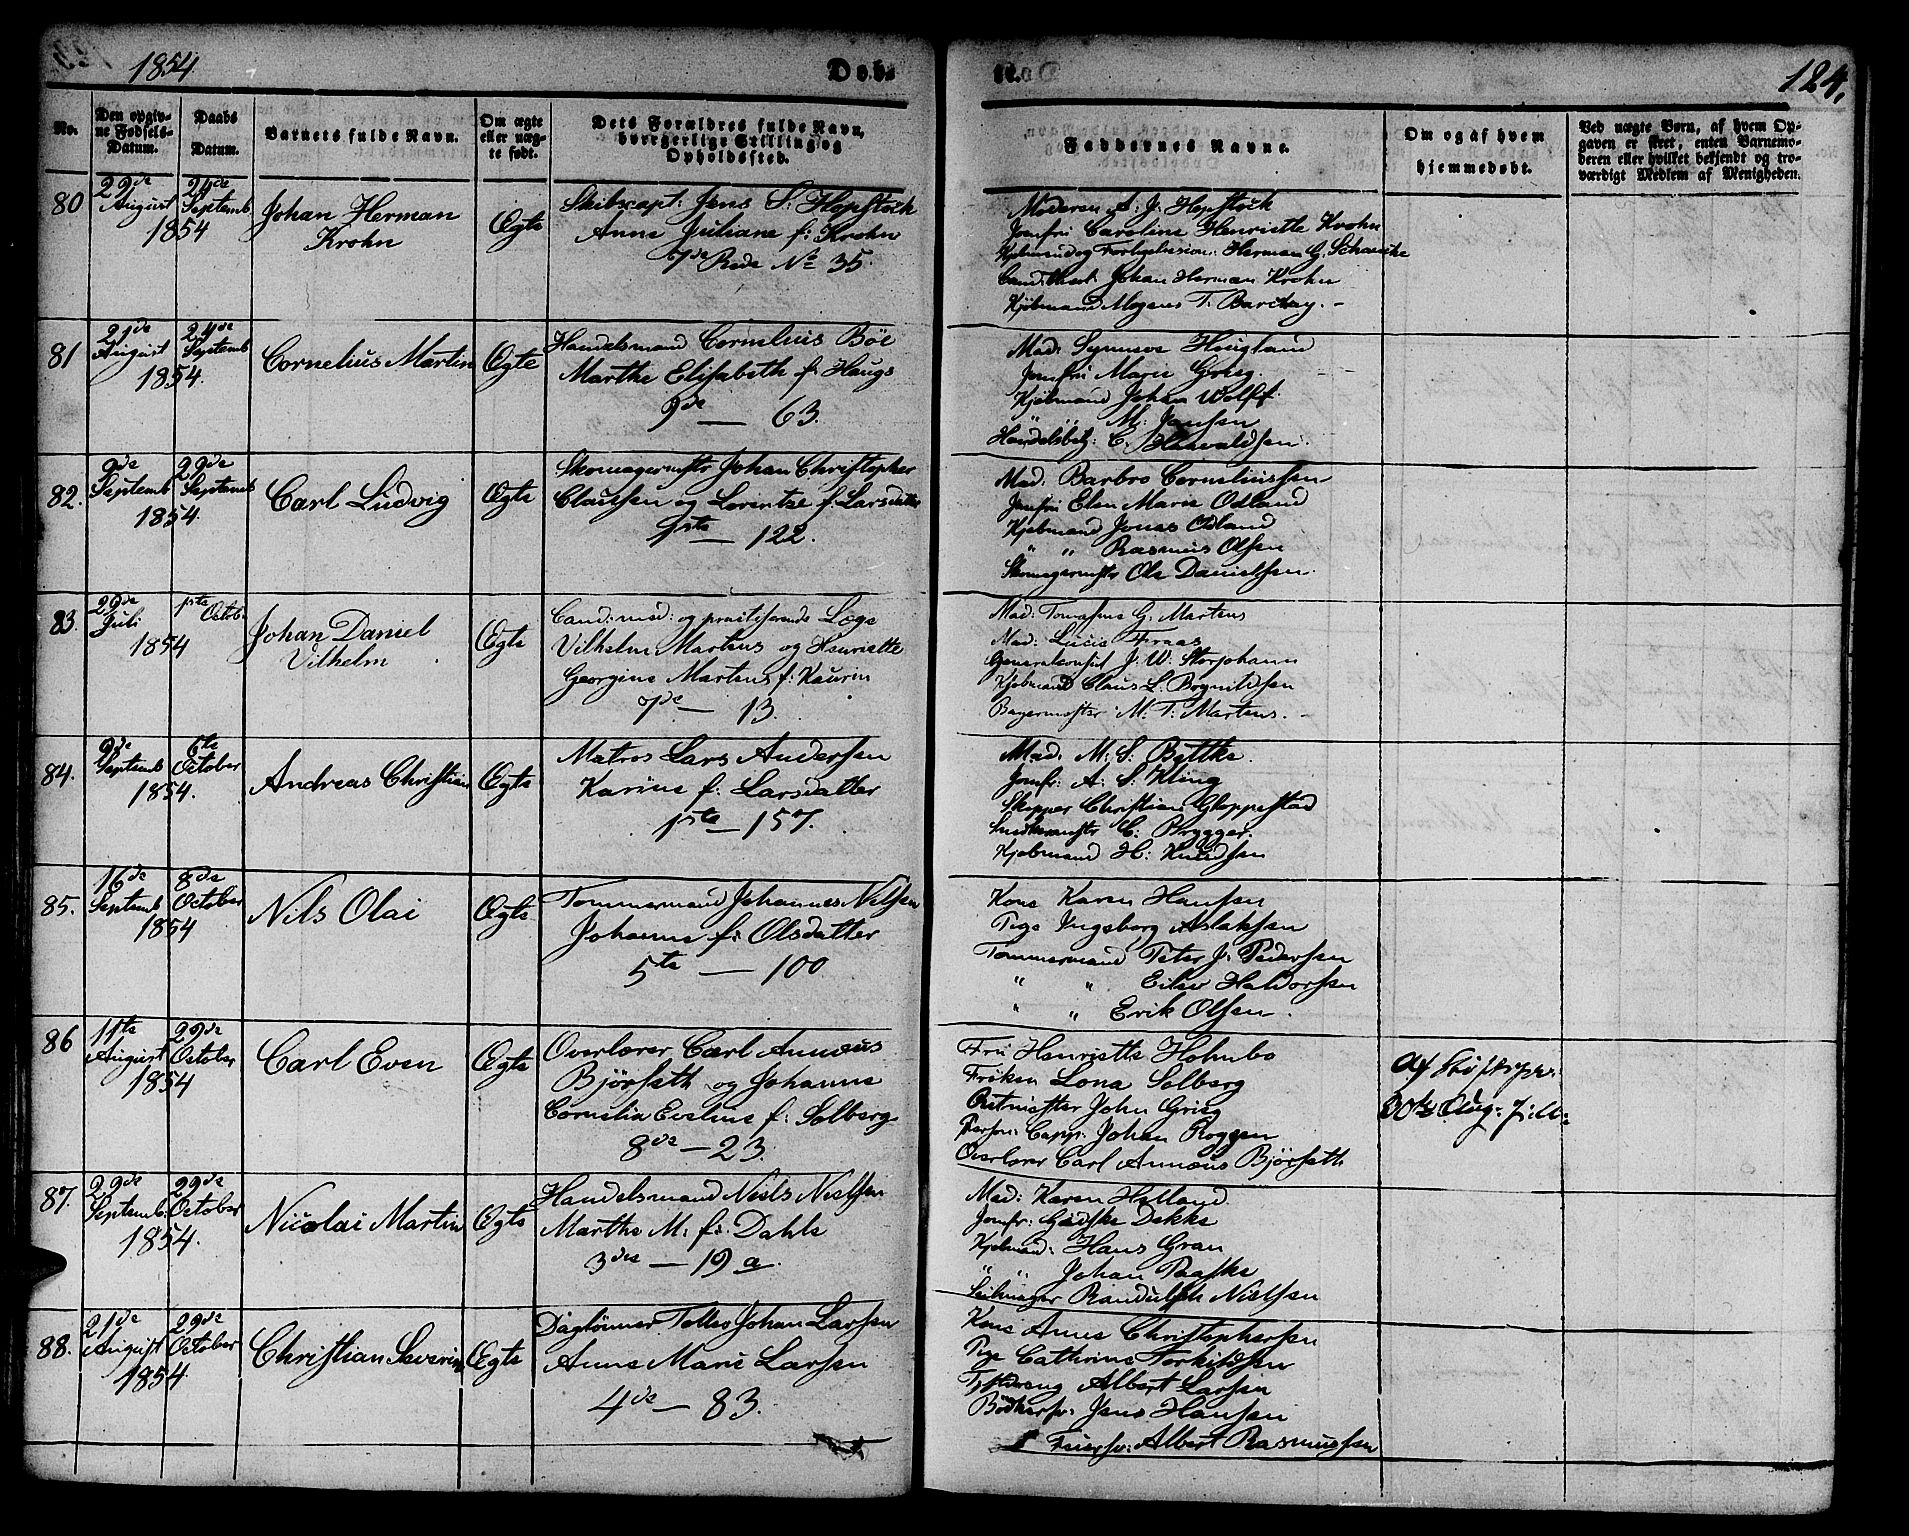 1854
Døb-
te.
124.
No.
Den opgiv-
ne Fødsels-
Datum.
Daabs
Datum.
Barnets fulde Navn.
Om ægte
eller uæg-
te født.
Dets Forældres fulde Navn,
borgerlige Stilling og
Opholdssted.
Faddernes Navne.
Om og af hvem
hjemmedøbt.
Ved uægte Børn, af hvem Op-
gaven er skeet, enten Barnemo-
deren eller hvilket bekjendt og tro-
værdigt Medlem af Menigheden.
80
29de August 1854
24de Septemb
Johan Herman
Krohn
Ægte
Skibscapt: Jens S: Hopstock
Anne Juliane f: Krohn
7de Rode No 35.
Moderen A. J. Hopstock
Jomfru Caroline Henriette Krohn
Herman G. Schancke
Johan Herman Krohn
Kjøbmand Mogens T. Barclay.
81
21de August 1854.
24de Septemb
Cornelius Martin
Ægte
Handelsmand Cornelius Böe
Marthe Elisabeth f: Haugs
9de — 63.
Mad. Synnove Hougland
Jomfru Marie Grieg.
Kjøbmand Johan Wolff.
" " M. Jansen
Handelsbetj: C. Harvaldsen.
82.
9de Septemb 1854.
29de Septemb
Carl Ludvig
Ægte
Skomagermstr Johan Christopher
Claussen og Lorentze f. Larsdatter
1ste — 122.
Mad. Barbro Corneliussen
Jomfru Elen Marie Odland
Kjøbmand Jonas Odland
" " Rasmus Olsen
Skomagermstr Ole Danielsen.
83.
29de Juli 1854
1ste Octob.
Johan Daniel
Vilhelm
Ægte
Cand: med: og practiserende Læge
Vilhelm Martens og Henriette
Georgine Martens f: Kaurin
7de — 13.
Mad: G. Martens
Mad: Lucie Fraas
Generalconsul J. W. Storjohann
Kjøbmand Claus L. Brynildsen
Bagermester M. T. Martens.
84.
9de Septemb 1854.
6te October
Andreas Christian
Ægte
Matros Lars Andersen
Karine f. Larsdatter
1ste — 157.
Mad. M. S. Bøttke
Jomfr: A. S. Kling
Skipper Christian Gloppestad
Snedkermstr C. Brygger.
Kjøbmand H: Knudsen
85.
16de Septemb 1854
8de October
Nils Olai
Ægte
Tømmermand Johannes Nilsen
Johanne f: Olsdatter
5te — 100
Kone Karen Hansen
Pige Ingeborg Aslaksen
Tømmermand Peter J. Pedersen
" " Eilev Haldorsen
" " Erik Olsen.
86
11te August 1854
29de October
Carl Even
Ægte
Overlærer Carl Annæus
Björseth og Johanne
Cornelia Eveline f: Solberg
8de — 23.
Fru Henriette Holmbo
Frøken Lona Solberg
Ritmester John Grieg
Capp: Johan Roggen
Overlærer Carl Annæus Björseth
af Stiftspr.
30te Aug.
87.
29de Septemb. 1854.
29de October
Nicolai Martin
Ægte
Handelsmand Niels Nielsen
Marthe M: f: Dahle
3die — 19 a.
Mad: Karen Helland.
Jomfr: Gjødske Dekke
Kjøbmand: Hans Gran
" " Johan Paaske
Seilmager Randulph Nielsen
88.
21de August 1854
29de October
Christian Severin
Ægte
Daglønner Tollev Johan Larsen
Anne Marie Larsen
4de — 83.
Kone Anne Christophersen
Pige Cathrine Torkildsen
Albert Larsen
Bødkersv. Jens Hansen
Feiersv: Albert Rasmussen